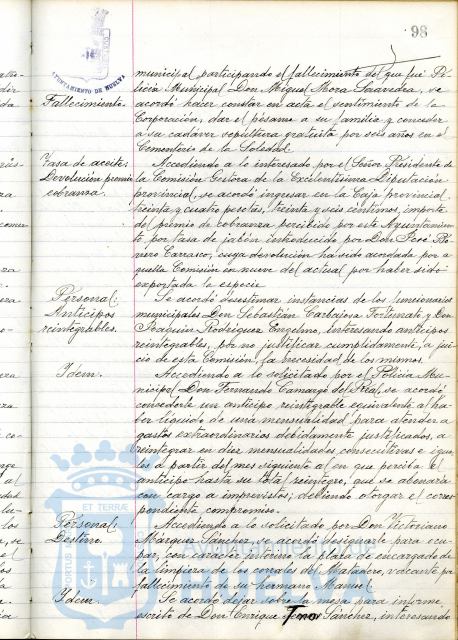 98
AYUNTAMIENTO DE HUELVA
municipal, participando el fallecimiento del que fué Po-
Fallecimiento.
licia Municipal Don Miguel Mora Saavedra, se
acordó hacer constar en acta el sentimiento de la
Corporación, dar el pésame a su familia y conceder
a su cadaver sepultura gratuita por seis años en el
Cementerio de la Soledad.
Tasa de aceite:
Devolución premio
cobranza.
Accediendo a lo interesado por el Señor Presidente de
la Comisión Gestora de la Excelentísima Diputación
provincial, se acordó ingresar en la Caja provincial
treinta y cuatro pesetas, treinta y seis céntimos, importe
del premio de cobranza percibido por este Ayuntamien-
to por tasa de jabón introducido por Don José
Carrasco, cuya devolución ha sido acordada por a-
quella Comisión en nueve del actual por haber sido
exportada la especie.
Personal:
Anticipos
reintegrables.
Se acordó desestimar instancias de los funcionarios
municipales Don Sebastián Carbajosa Fortunato y Don
Joaquín Rodriguez Engelmo, interesando anticipos
reintegrables, por no justificar cumplidamente, a jui-
cio de esta Comisión, la necesidad de los mismos.
Idem.
Accediendo a lo solicitado por el Policia Mu-
nicipal Don Fernando Camargo del Real, se acordó
concederle un anticipo reintegrable equivalente al ha-
ber líquido de una mensualidad para atender a
gastos extraordinarios debidamente justificados, a
reintegrar en diez mensualidades consecutivas e igua-
les a partir del mes siguiente al en que perciba el
anticipo hasta su total reintegro, que se abonaría
con cargo a imprevistos; debiendo otorgar el corres-
pondiente compromiso.
Personal:
Destino.
Accediendo a lo solicitado por Don Victoriano
Márquez Sánchez, se acordó designarle para ocu-
par, con carácter interino la plaza de encargado de
la limpieza de los corrales del Matadero, vacante por
fallecimiento de su hermano Manuel.
Idem.
Se acordó dejar sobre la mesa para informe
escrito de Don Enrique Sánchez, interesando